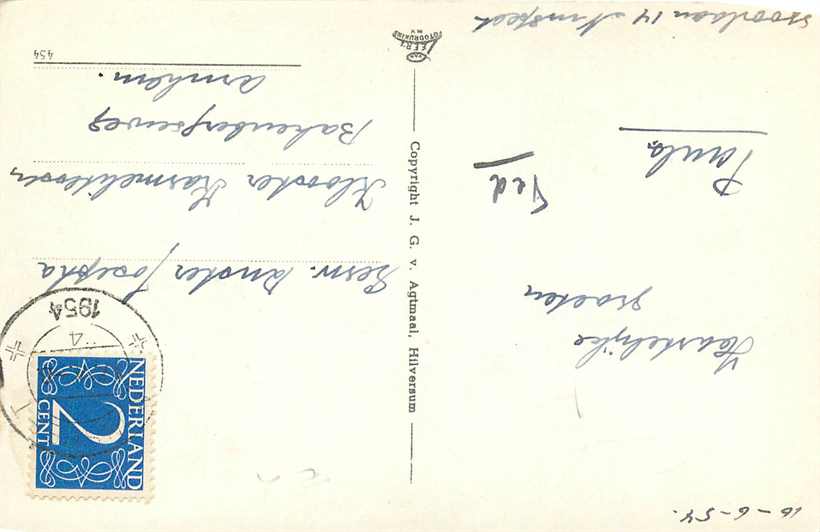 16-6-54.
Hartelijke
groeten
Paula
Ted
14 Nunspeet
Copyright J. G. v. Agtmaal, Hilversum
VAN
LEER'S
FOTODRUKIND
N.V.
NEDERLAND
2
CENT
4
1954
Eerw. Zuster Josepha
Klooster Karmelitessen
Bakenbergseweg
Arnhem.
454